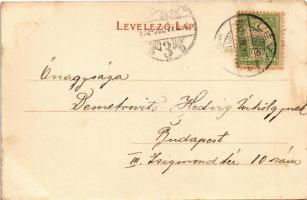 Levelező-Lap.
Őnagysága
Demetrovits Hedvig Úrhölgynek
Budapest
III. Zsigmond tér 10 szám